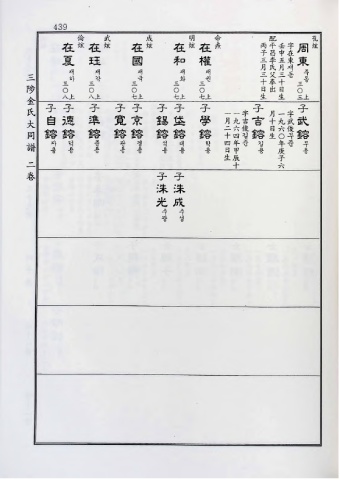 439
三陟金氏大同譜 二卷
孔炫
周東 주동 上三〇三
字在東재동
壬申五月三十日生
配千呂李氏父奉出
丙子三月三十日生
子武鎔 무용
字武俊무준
一九六〇年庚子六
月十日生
子吉鎔 길용
字吉俊길준
一九六四年甲辰十
一月二十四日生
在權 재권 上三〇七
子學鎔 학용
明炫
在和 재화 上三〇七
子垈鎔 대용
子洙成 수성
子錫鎔 석용
子洙光 수광
成炫
在國 재국 上三〇七
子京鎔 경용
子寬鎔 관용
武炫
在珏 재각 上三〇八
子準鎔 준용
倫炫
在夏 재하 上三〇八
子德鎔 덕용
子自鎔 자용